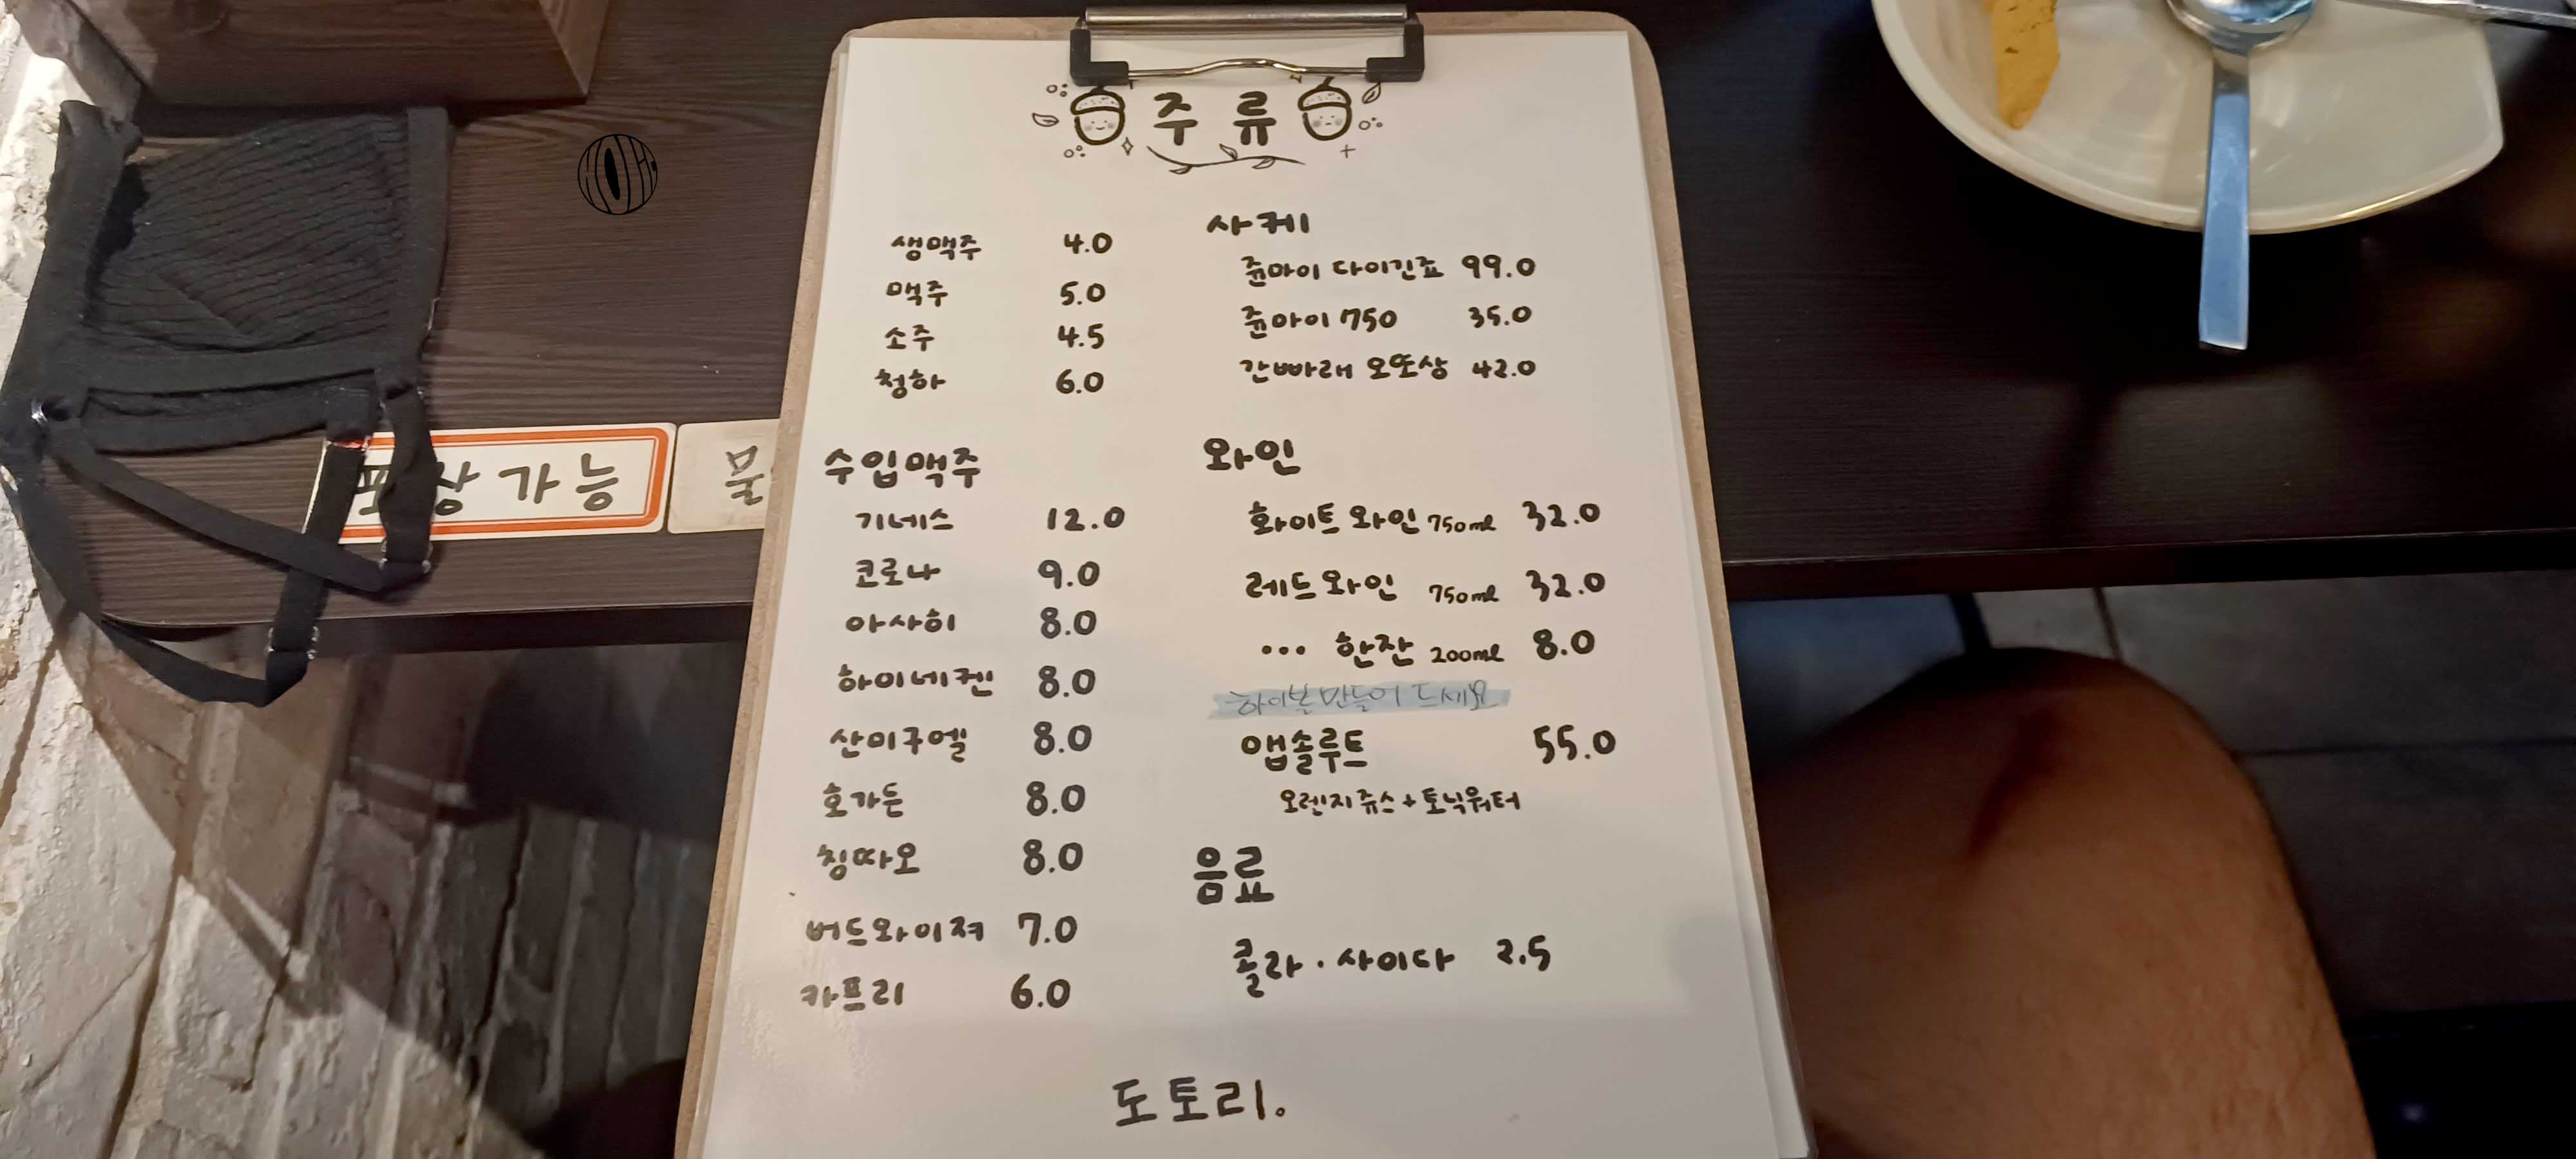 주류
생맥주 4.0
맥주 5.0
소주 4.5
청하 6.0
수입맥주
기네스 12.0
코로나 9.0
아사히 8.0
하이네켄 8.0
산미구엘 8.0
호가든 8.0
칭따오 8.0
버드와이져 7.0
카프리 6.0
사케
쥰마이 다이긴죠 99.0
쥰마이 750 35.0
간빠레 오또상 42.0
와인
화이트 와인 750ml 32.0
레드 와인 750ml 32.0
... 한잔 200ml 8.0
하이볼 만들어 드세요
앱솔루트 55.0
오렌지쥬스 + 토닉워터
음료
콜라 · 사이다 2.5
도토리.
포장 가능
물